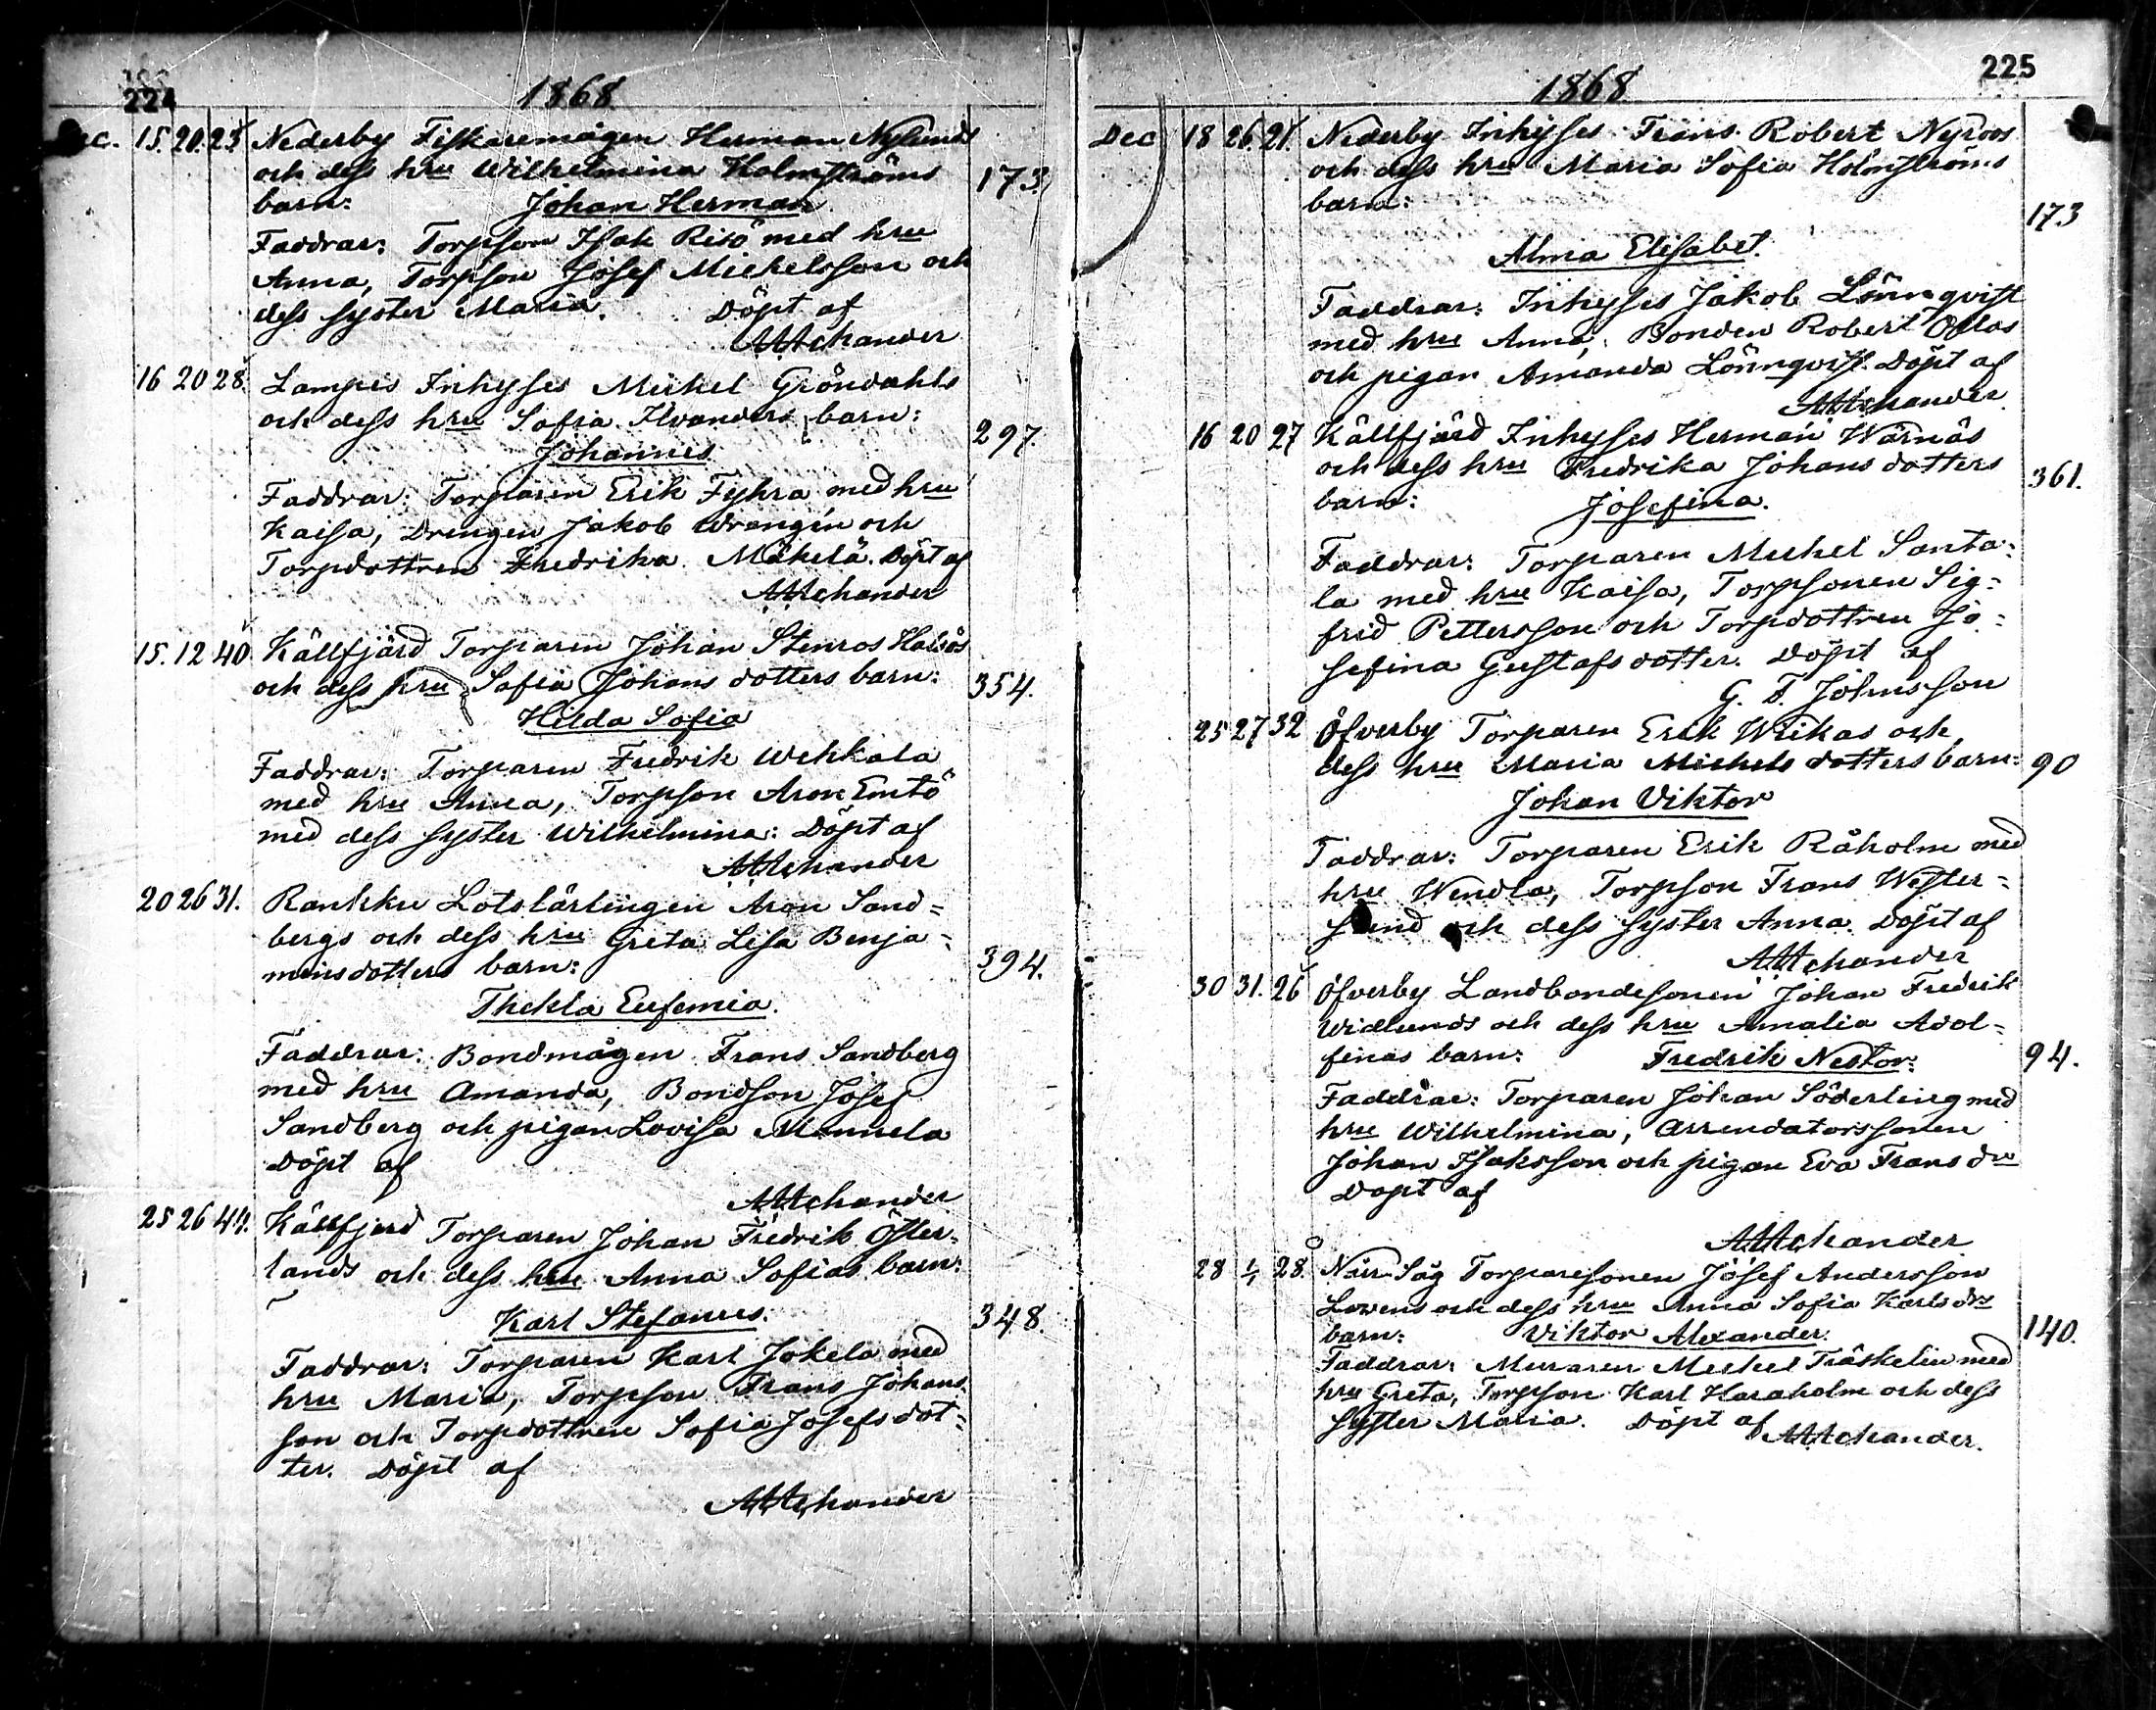 224
1868
Dec. 15. 20. 23 Nederby Fiskaremågen Herman Nylunds
och dess hru Wilhelmina Holmströms
173.
barn: Johan Herman
Faddrar: Torpson Isak Risö med hru
Anna, Torpson Josef Michelsson och
dess syster Maria. Döpt af
16 20 28. Lampis Inhyses Michel Gröndahls
och dess hru Sofia Ilvanders barn:
297.
Johannes
Faddrar: Torparen Erik Fyhra med hru
Kaisa, Drengen Jakob Wrengin och
Torpdottren Fredrika Mäkelä. Döpt af
15. 12 40 Källfjärd Torparen Johan Stenros Halsös
och dess hru Sofia Johansdotters barn:
354.
Hilda Sofia
Faddrar: Torparen Fredrik Wehkala
med hru Anna, Torpson Aron Emtö
med dess syster Wilhelmina: Döpt af
20 26 31. Rankku Lotslärlingen Aron Sand=
bergs och dess hru Greta Lisa Benja=
minsdotters barn:
394.
Thekla Eufemia.
Faddrar: Bondmågen Frans Sandberg
med hru Amanda, Bondson Josef
Sandberg och pigan Lovisa Mannela
Döpt af
25 26 44. Källfjerd Torparen Johan Fredrik Öster-
lands och dess hru Anna Sofias barn:
Karl Stefanus.
348.
Faddrar: Torparen Karl Jokela med
hru Maria, Torpson Frans Johans
son och Torpdottren Sofia Josefsdot=
ter. Döpt af
225
1868
Dec 18 26. 21. Nederby Inhyses Frans Robert Nyroos
och dess hru Maria Sofia Holmströms
barn:
173
Alma Elisabet.
Faddrar: Inhyses Jakob Lönnqvist
med hru Anna, Bonden Robert Oflas
och pigan Amanda Lönnqvist. Döpt af
16 20 27 Källfjärd Inhyses Herman Wärnäs
och dess hru Fredrika Johansdotters
361.
barn: Josefina.
Faddrar: Torparen Michel Santa=
la med hru Kaisa, Torpsonen Sig=
frid Pettersson och Torpdottren Jo=
sefina Gustafsdotter. Döpt af
G. F. Johnsson
25 27 32 Öfverby Torparen Erik Wiikas och
dess hru Maria Michelsdotters barn:
90
Johan Viktor
Faddrar: Torparen Erik Råholm med
hru Wendla, Torpson Frans Wester=
sund och dess syster Anna. Döpt af
30 31. 26 Öfverby Landbondesonen Johan Fredrik
Widlunds och dess hru Amalia Adol=
finas barn: Fredrik Nestor:
94.
Faddrar: Torparen Johan Söderling med
hru Wilhelmina, Arrendatorssonen
Johan Isaksson och pigan Eva Fransdr
Döpt af
28 1/1 28. Närr Såg Torparesonen Josef Andersson
Lovens och dess hru Anna Sofia Karlsdrs
barn: Viktor Alexander.
140.
Faddrar: Muraren Michel Träskelin med
hru Greta, Torpson Karl Haraholm och dess
syster Maria. Döpt af